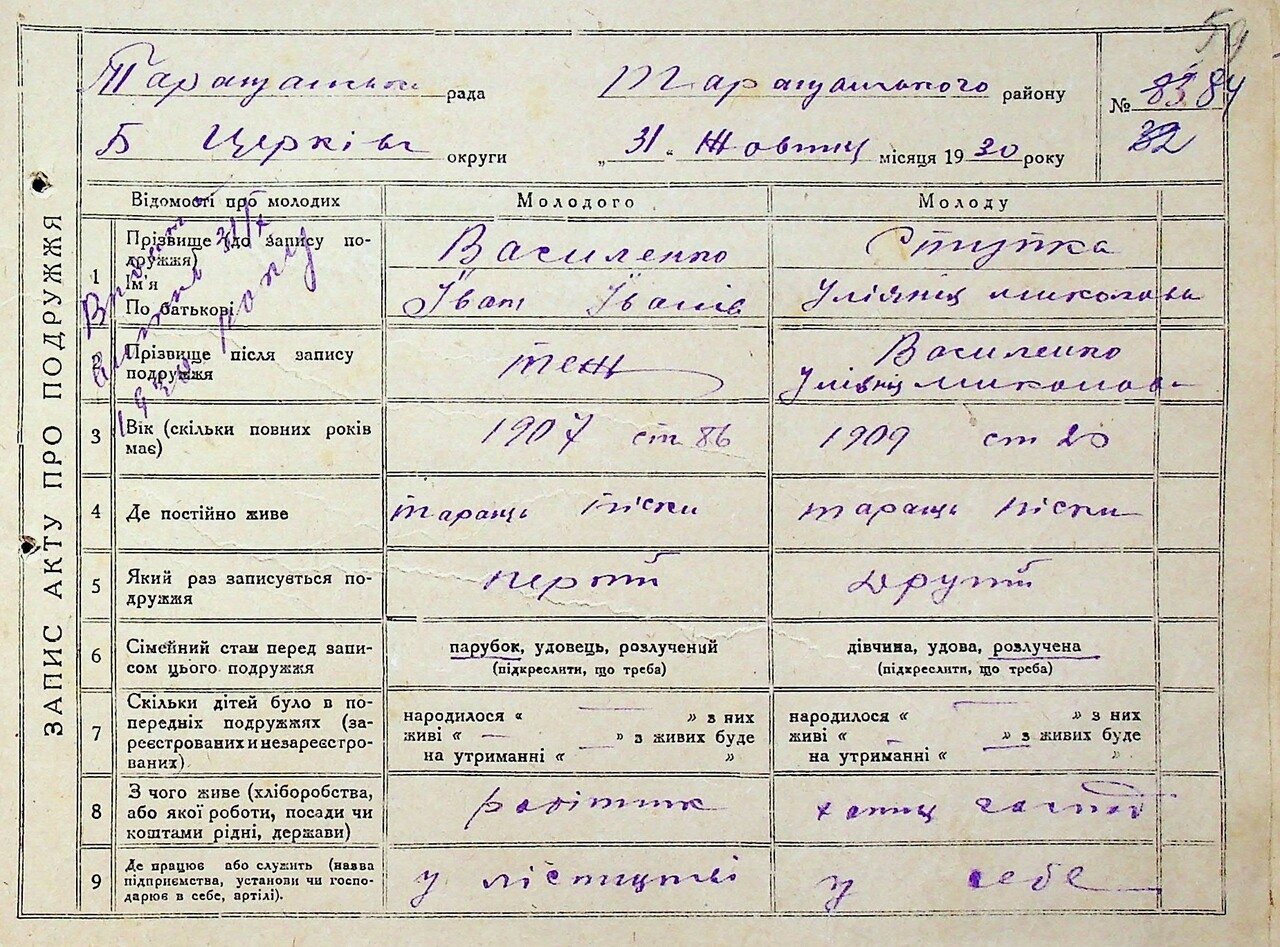 59
Таращанська рада Таращанського району № 83 84
Б Церківс округи „31“ Жовтня місяця 1930 року 82
ЗАПИС АКТУ ПРО ПОДРУЖЖЯ
Відомості про молодих Молодого Молоду
31/X
1930 року
1 Прізвище (до запису по-
дружжя) Василенко Ступка
Ім'я
По батькові Іван Іванів Уліянія Миколова
2 Прізвище після запису
подружжя теж Василенко
Улівнія Миколов
3 Вік (скільки повних років
має) 1907 ст 1909 ст 20
4 Де постійно живе таращ піски таращ піски
5 Який раз записується по-
дружжя перший другий
6 Сімейний стан перед запи-
сом цього подружжя парубок, удовець, розлучений дівчина, удова, розлучена
(підкреслити, що треба) (підкреслити, що треба)
7 Скільки дітей було в по-
передніх подружжях (за-
реєстрованих и незареєстро-
ваних) народилося « — » з них народилося « — » з них
живі « — » з живих буде живі « — » з живих буде
на утриманні « — » на утриманні « — »
8 З чого живе (хліборобства,
або якої роботи, посади чи
коштами рідні, держави) робітник хатня господ
9 Де працює або служить (назва
підприємства, установи чи госпо-
дарює в себе, артілі). у лісництві у себе